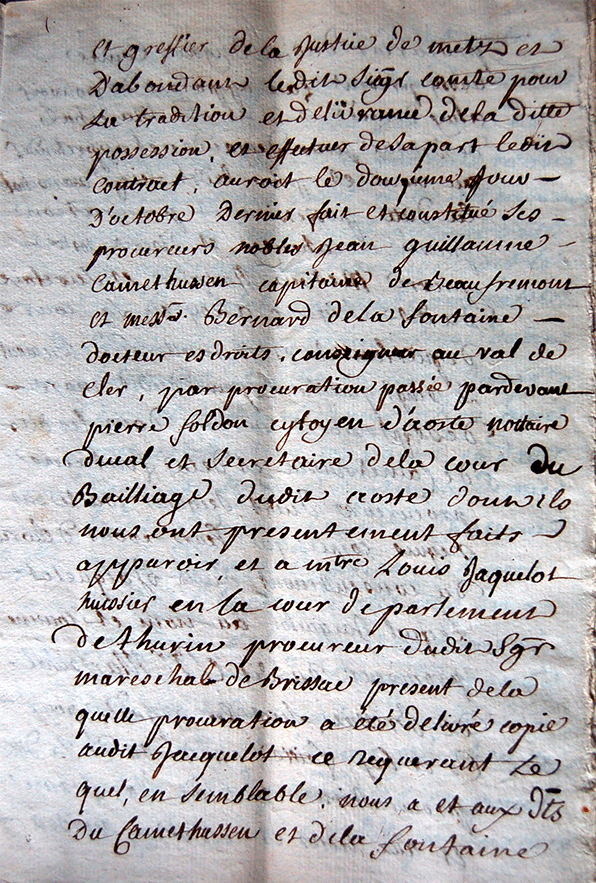 et greffier de la Justice de metz et
D'abondant ledit Sigr comte pour
La tradition et delivrance de la ditte
possession, et effectuer de sa part ledit
contract, auroit le douzieme Jour —
D'octobre Dernier fait et constitué ses —
procureurs nobles Jean guillaume —
Camethussen capitaine de Beaufremont
et mess.e Bernard de la fontaine —
docteur es droits, conseigneur au val de
cler, par procuration passée pardevant
pierre foldon cytoyen d'aoste nottaire
ducal et Secretaire de la cour du
Bailliage dudit aoste dont ils
nous ont presentement faits —
apparoir, et a mtre Louis Jaquelot
huissier en la cour de parlement
de thurin procureur dudit Sgr
mareschal de Brissac present de la
quelle procuration a été delivré copie
audit Jacquelot ce requerant Le
quel, en semblable, nous a et aux dts
Du Camethussen et de la fontaine